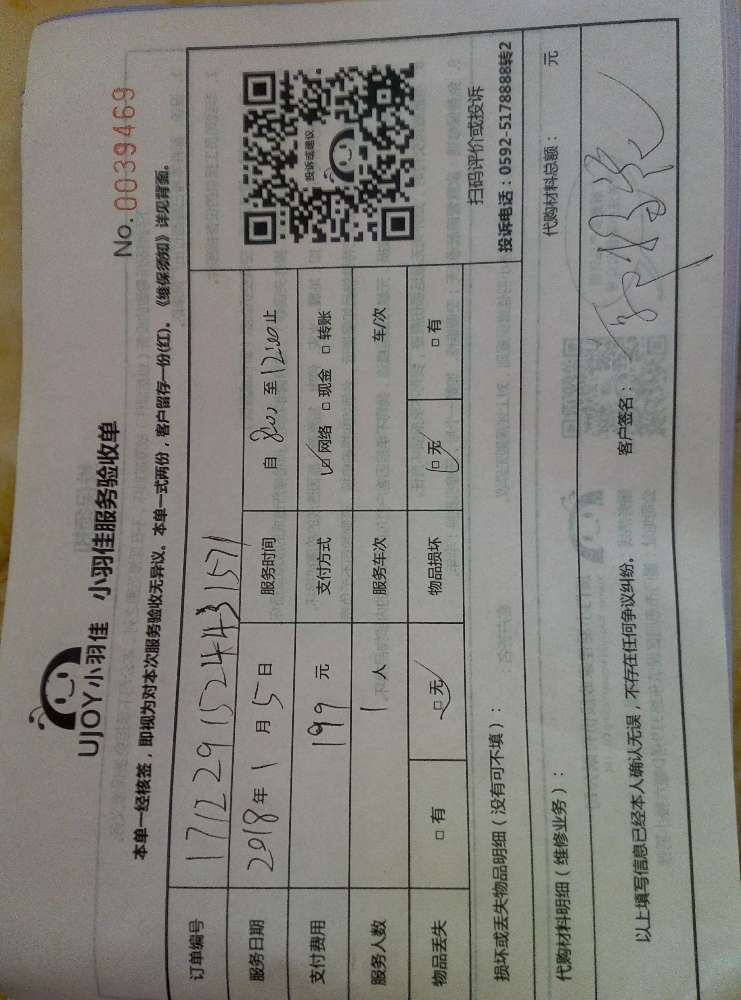 UJOY小羽佳 小羽佳服务验收单
No. 0039469
本单一经核签，即视为对本次服务验收无异议。本单一式两份，客户留存一份(红)。《维保须知》详见背面。
订单编号 1712291524431571
服务日期 2018年1月5日 服务时间 自 8:00 至 12:00 止
支付费用 199 元 支付方式 ☑网络 □现金 □转账
服务人数 1 人 服务车次 车/次
物品丢失 □有 ☑无 物品损坏 ☑无 □有
投诉或建议
扫码评价或投诉
投诉电话：0592-5178888转2
损坏或丢失物品明细（没有可不填）：
代购材料明细（维修业务）： 代购材料总额： 元
以上填写信息已经本人确认无误，不存在任何争议纠纷。 客户签名：